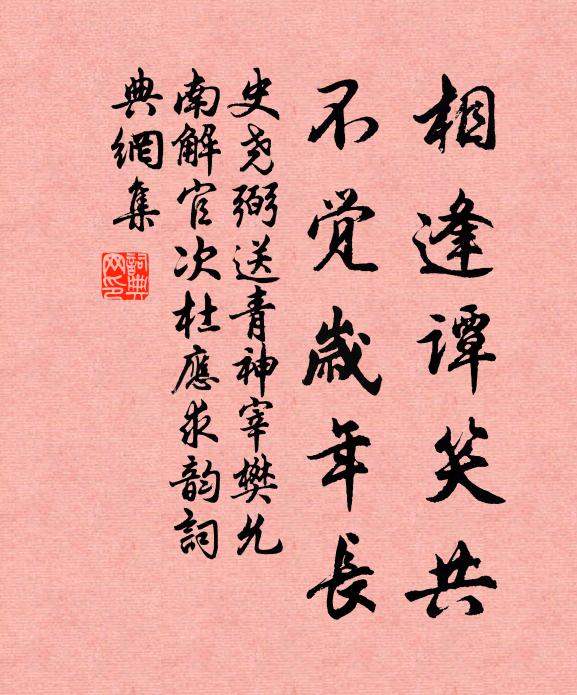 相逢譚笑共
不覚歳年長
史尧弼送青神宰樊允
南解官次杜應求韵詞
典網集
詞典
网印